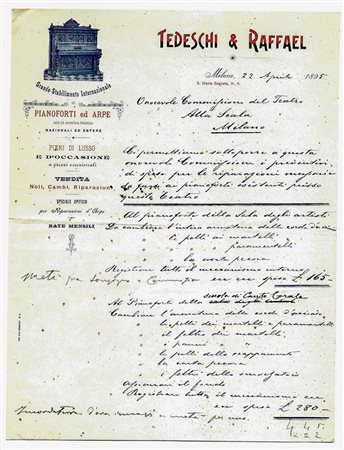 TEDESCHI & RAFFAEL
Grande Stabilimento Internazionale
Milano, 22 Aprile 1895
S. Maria Segreta, N.
PIANOFORTI ed ARPE
NAZIONALI ED ESTERE
PIANI DI LUSSO
E D'OCCASIONE
a prezzi eccezionali
VENDITA
Noli, Cambi, Riparazioni
SPECIALE OFFICINA
per Riparazioni d'Arpe
RATE MENSILI
Onorevole Commissione del Teatro
Alla Scala
Milano
Ci permettiamo sottoporre a questa
onorevole Commissione i preventivi
di spesa per le riparazioni
ai pianoforti esistenti presso
questo Teatro
Al pianoforte della Sala degli artisti
Da cambiare l'intera armatura delle corde d'acciaio
" le pelli ai martelli
" " " paramartelli
" la carta pecora
Registrare tutto il meccanismo interno
spesa £ 165
Metà per
Al Pianoforte della scuola di Canto Corale
Cambiare l'armatura delle corde d'acciaio
" le pelli dei martelli e paramartelli
" il feltro dei martelli
" i panni
" le pelli dello scappamento
" la carta pecora
" i feltri della
il fondo
Registrare tutto il meccanismo
spesa £ 280
a metà per uno.
445
222